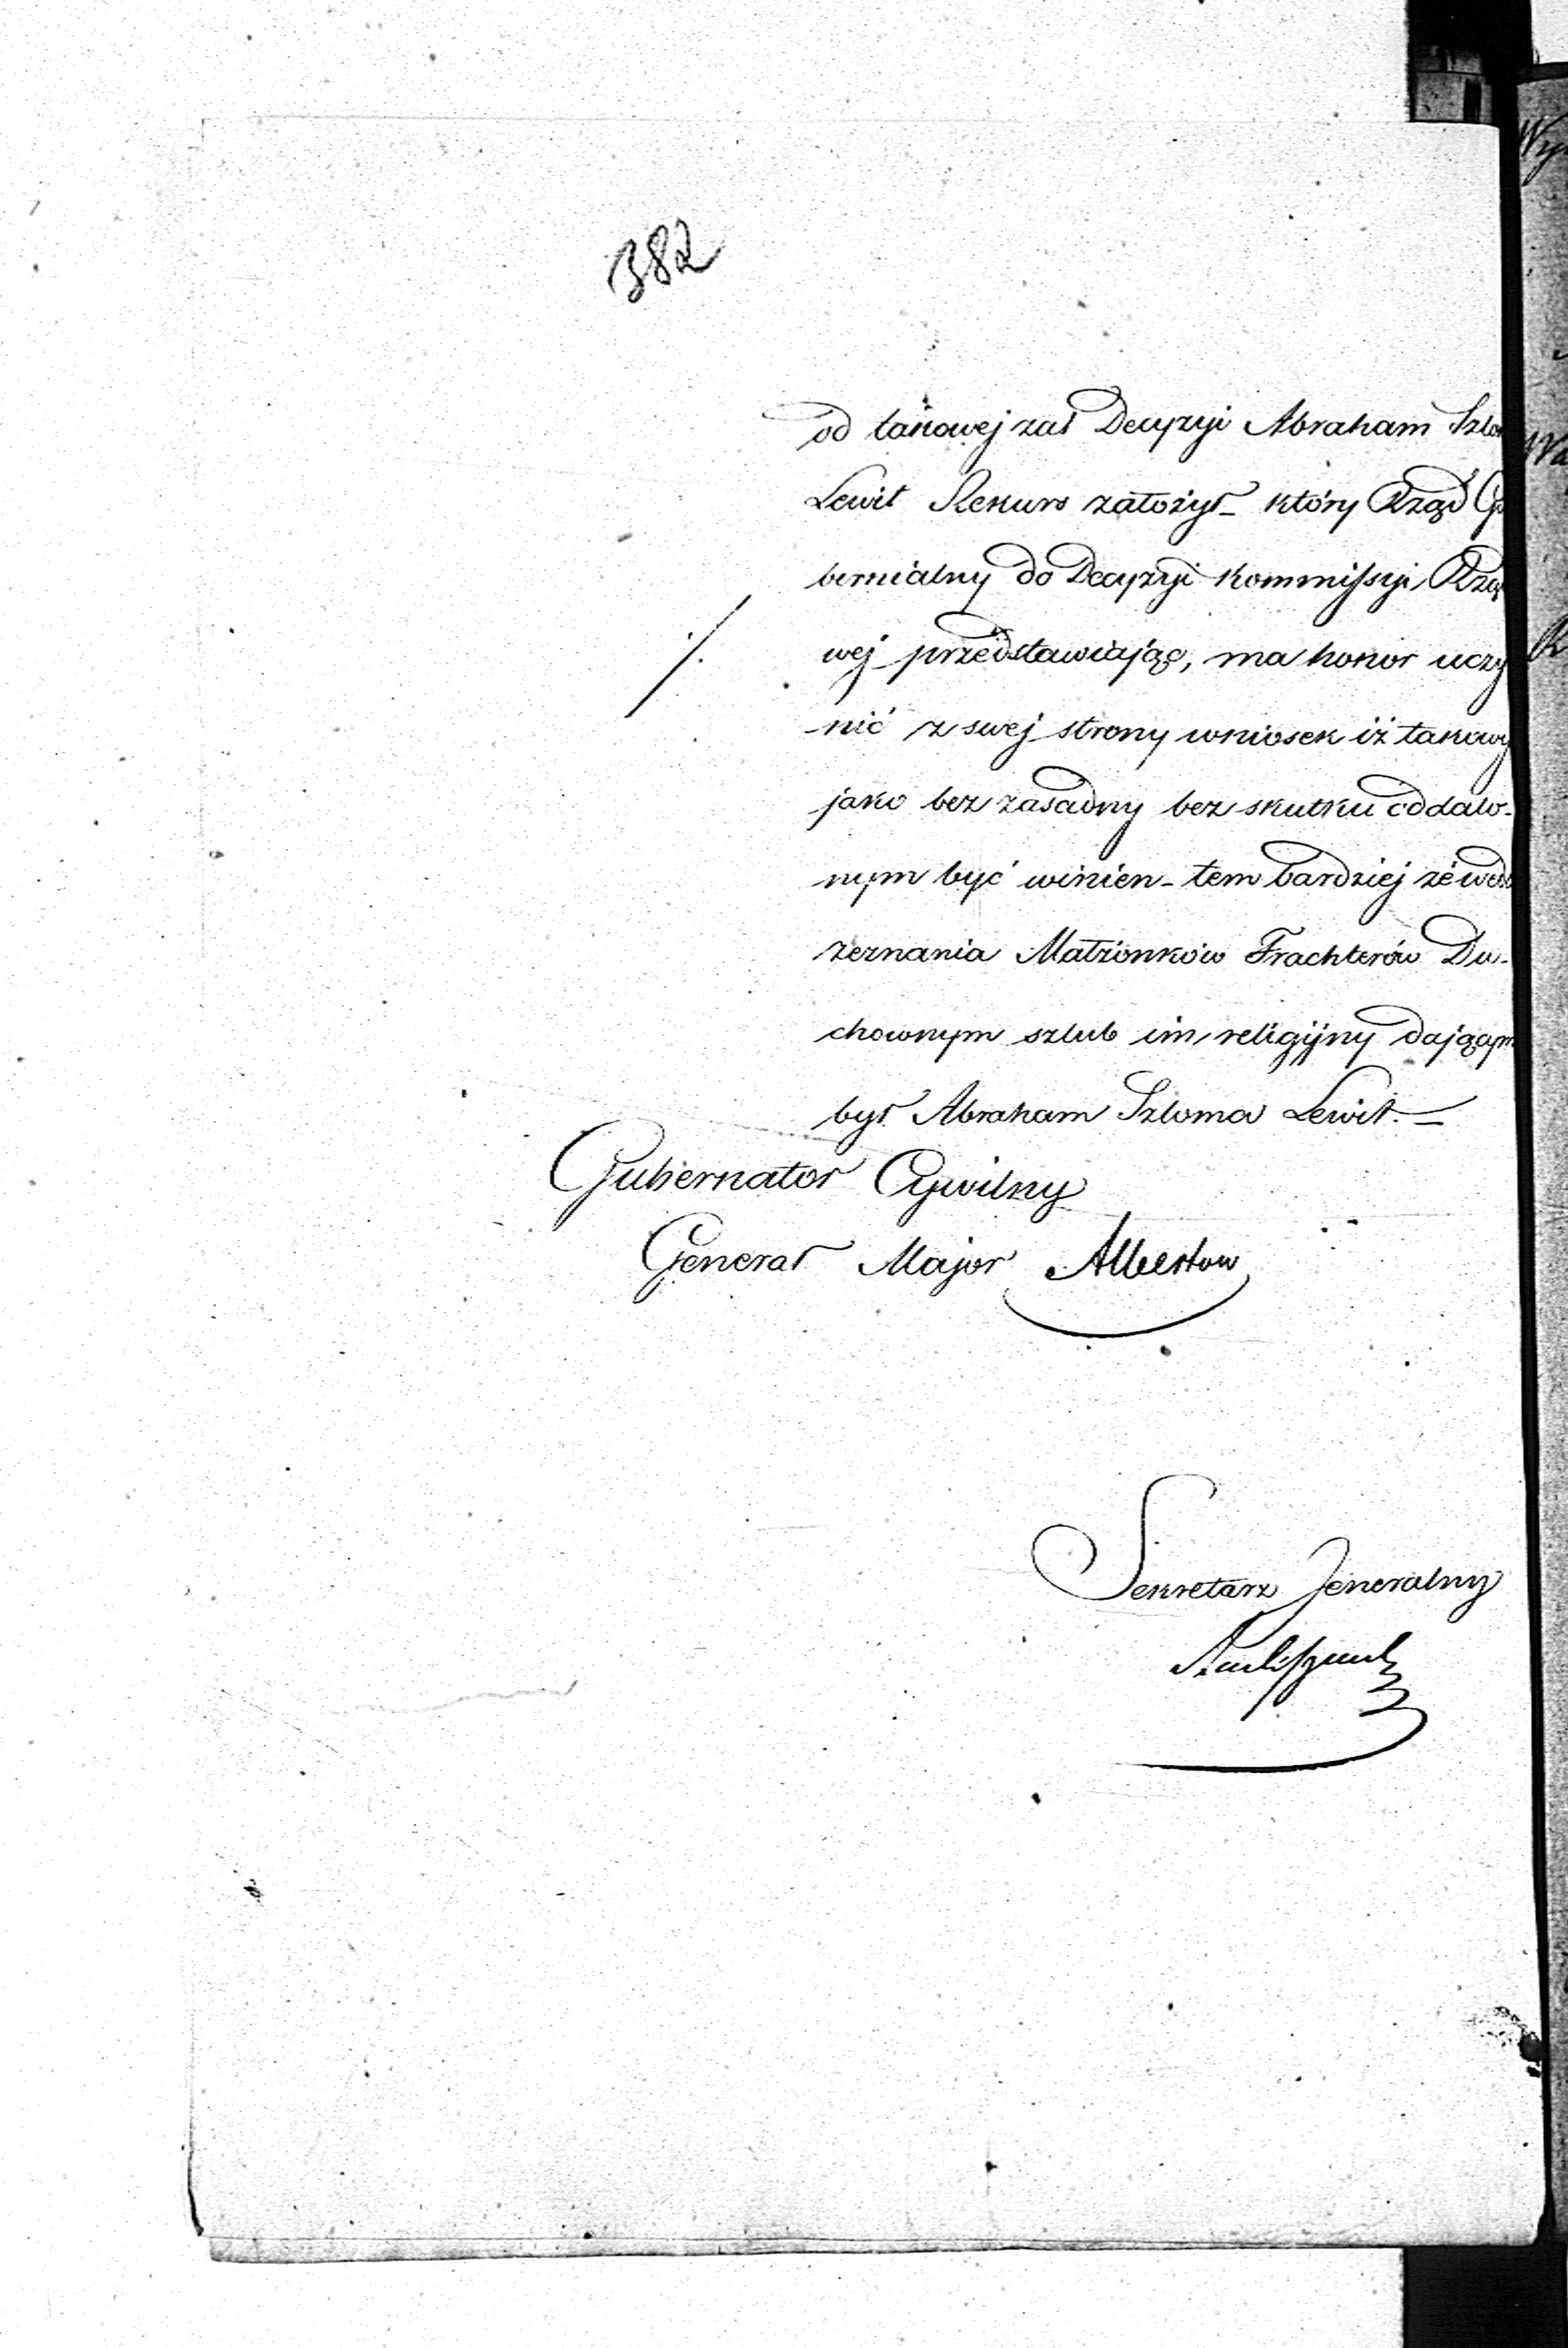 382
od takowej zaś Decyzyi Abraham Szlo
Lewit Rekurs założył – który Rząd Gu
bernialny do Decyzyi Kommissyi Rzą
wej przedstawiając, ma honor uczy
nić z swej strony wniosek iż takowy
jako bez zasadny bez skutku oddalo-
nym być winien – tem bardziej że wedł
zeznania Małżonków Frachterów Du-
chownym szlub im religijny dającym
był Abraham Szloma Lewit. –
Gubernator Cywilny
Generał Major Albertow
Sekretarz Jeneralny